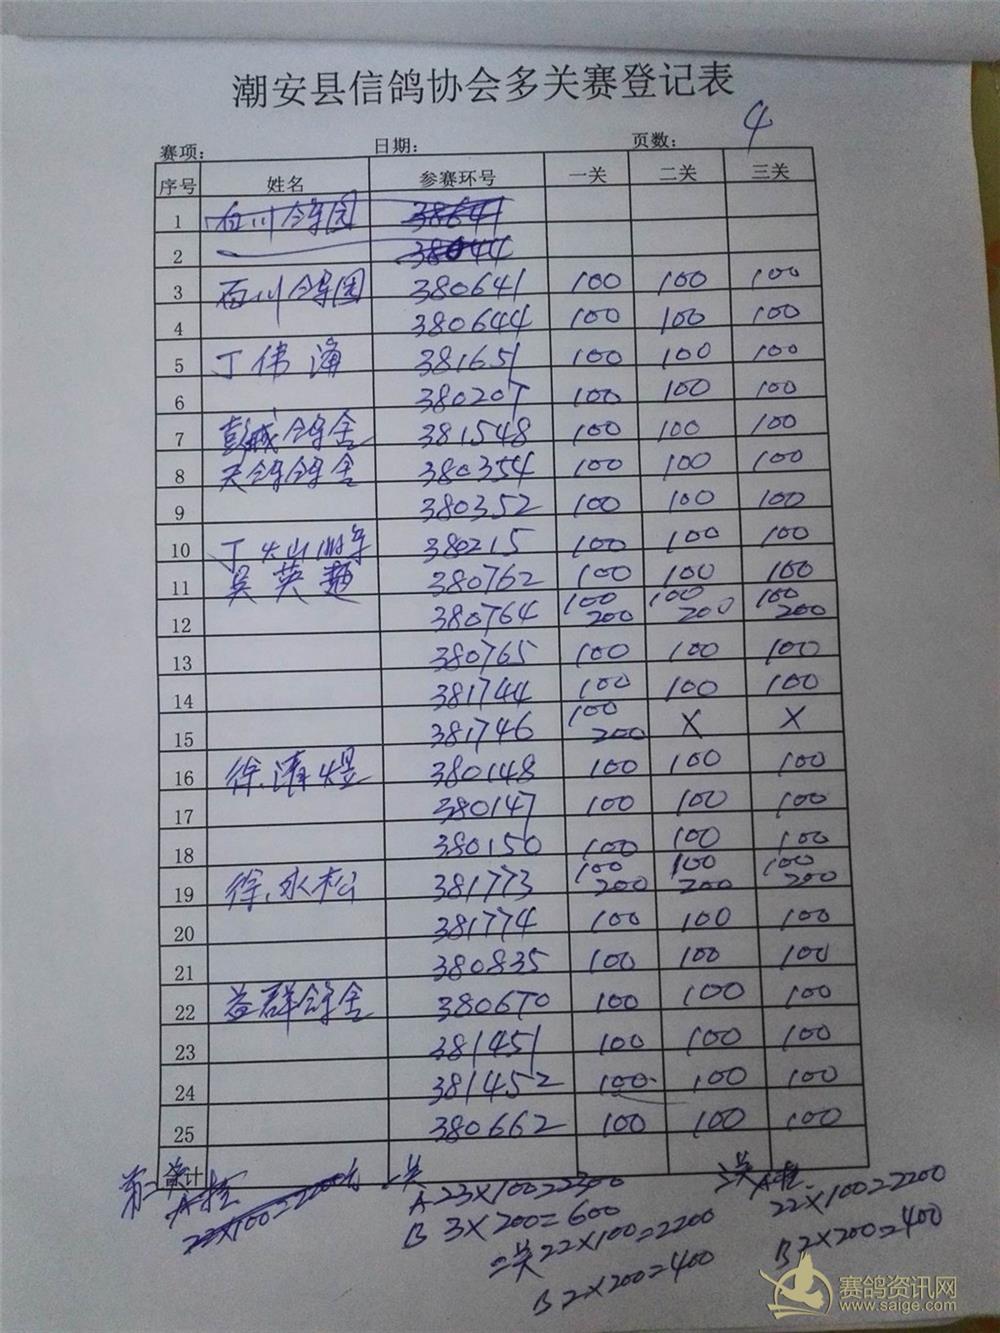 潮安县信鸽协会多关赛登记表
4
赛项： 日期： 页数：
序号 姓名 参赛环号 一关 二关 三关
1 百川鸽园 38641
2 38044
3 百川鸽园 380641 100 100 100
4 380644 100 100 100
5 丁伟海 381651 100 100 100
6 380207 100 100 100
7 彭城鸽舍 381548 100 100 100
8 天鸽鸽舍 380354 100 100 100
9 380352 100 100 100
10 丁 380215 100 100 100
11 吴英 380762 100 100 100
12 380764 100 200 100 200 100 200
13 380765 100 100 100
14 381744 100 100 100
15 381746 100 200 X X
16 徐清煜 380148 100 100 100
17 380147 100 100 100
18 380150 100 100 100
19 徐永松 381773 100 200 100 200 100 200
20 381774 100 100 100
21 380835 100 100 100
22 益群鸽舍 380670 100 100 100
23 381451 100 100 100
24 381452 100 100 100
25 380662 100 100 100
计
22×100=2200
一关 A 23×100=2300
B 3×200=600
二关 22×100=2200
B 2×200=400
三关 A 22×100=2200
B 2×200=400
赛鸽资讯网
www.saige.com